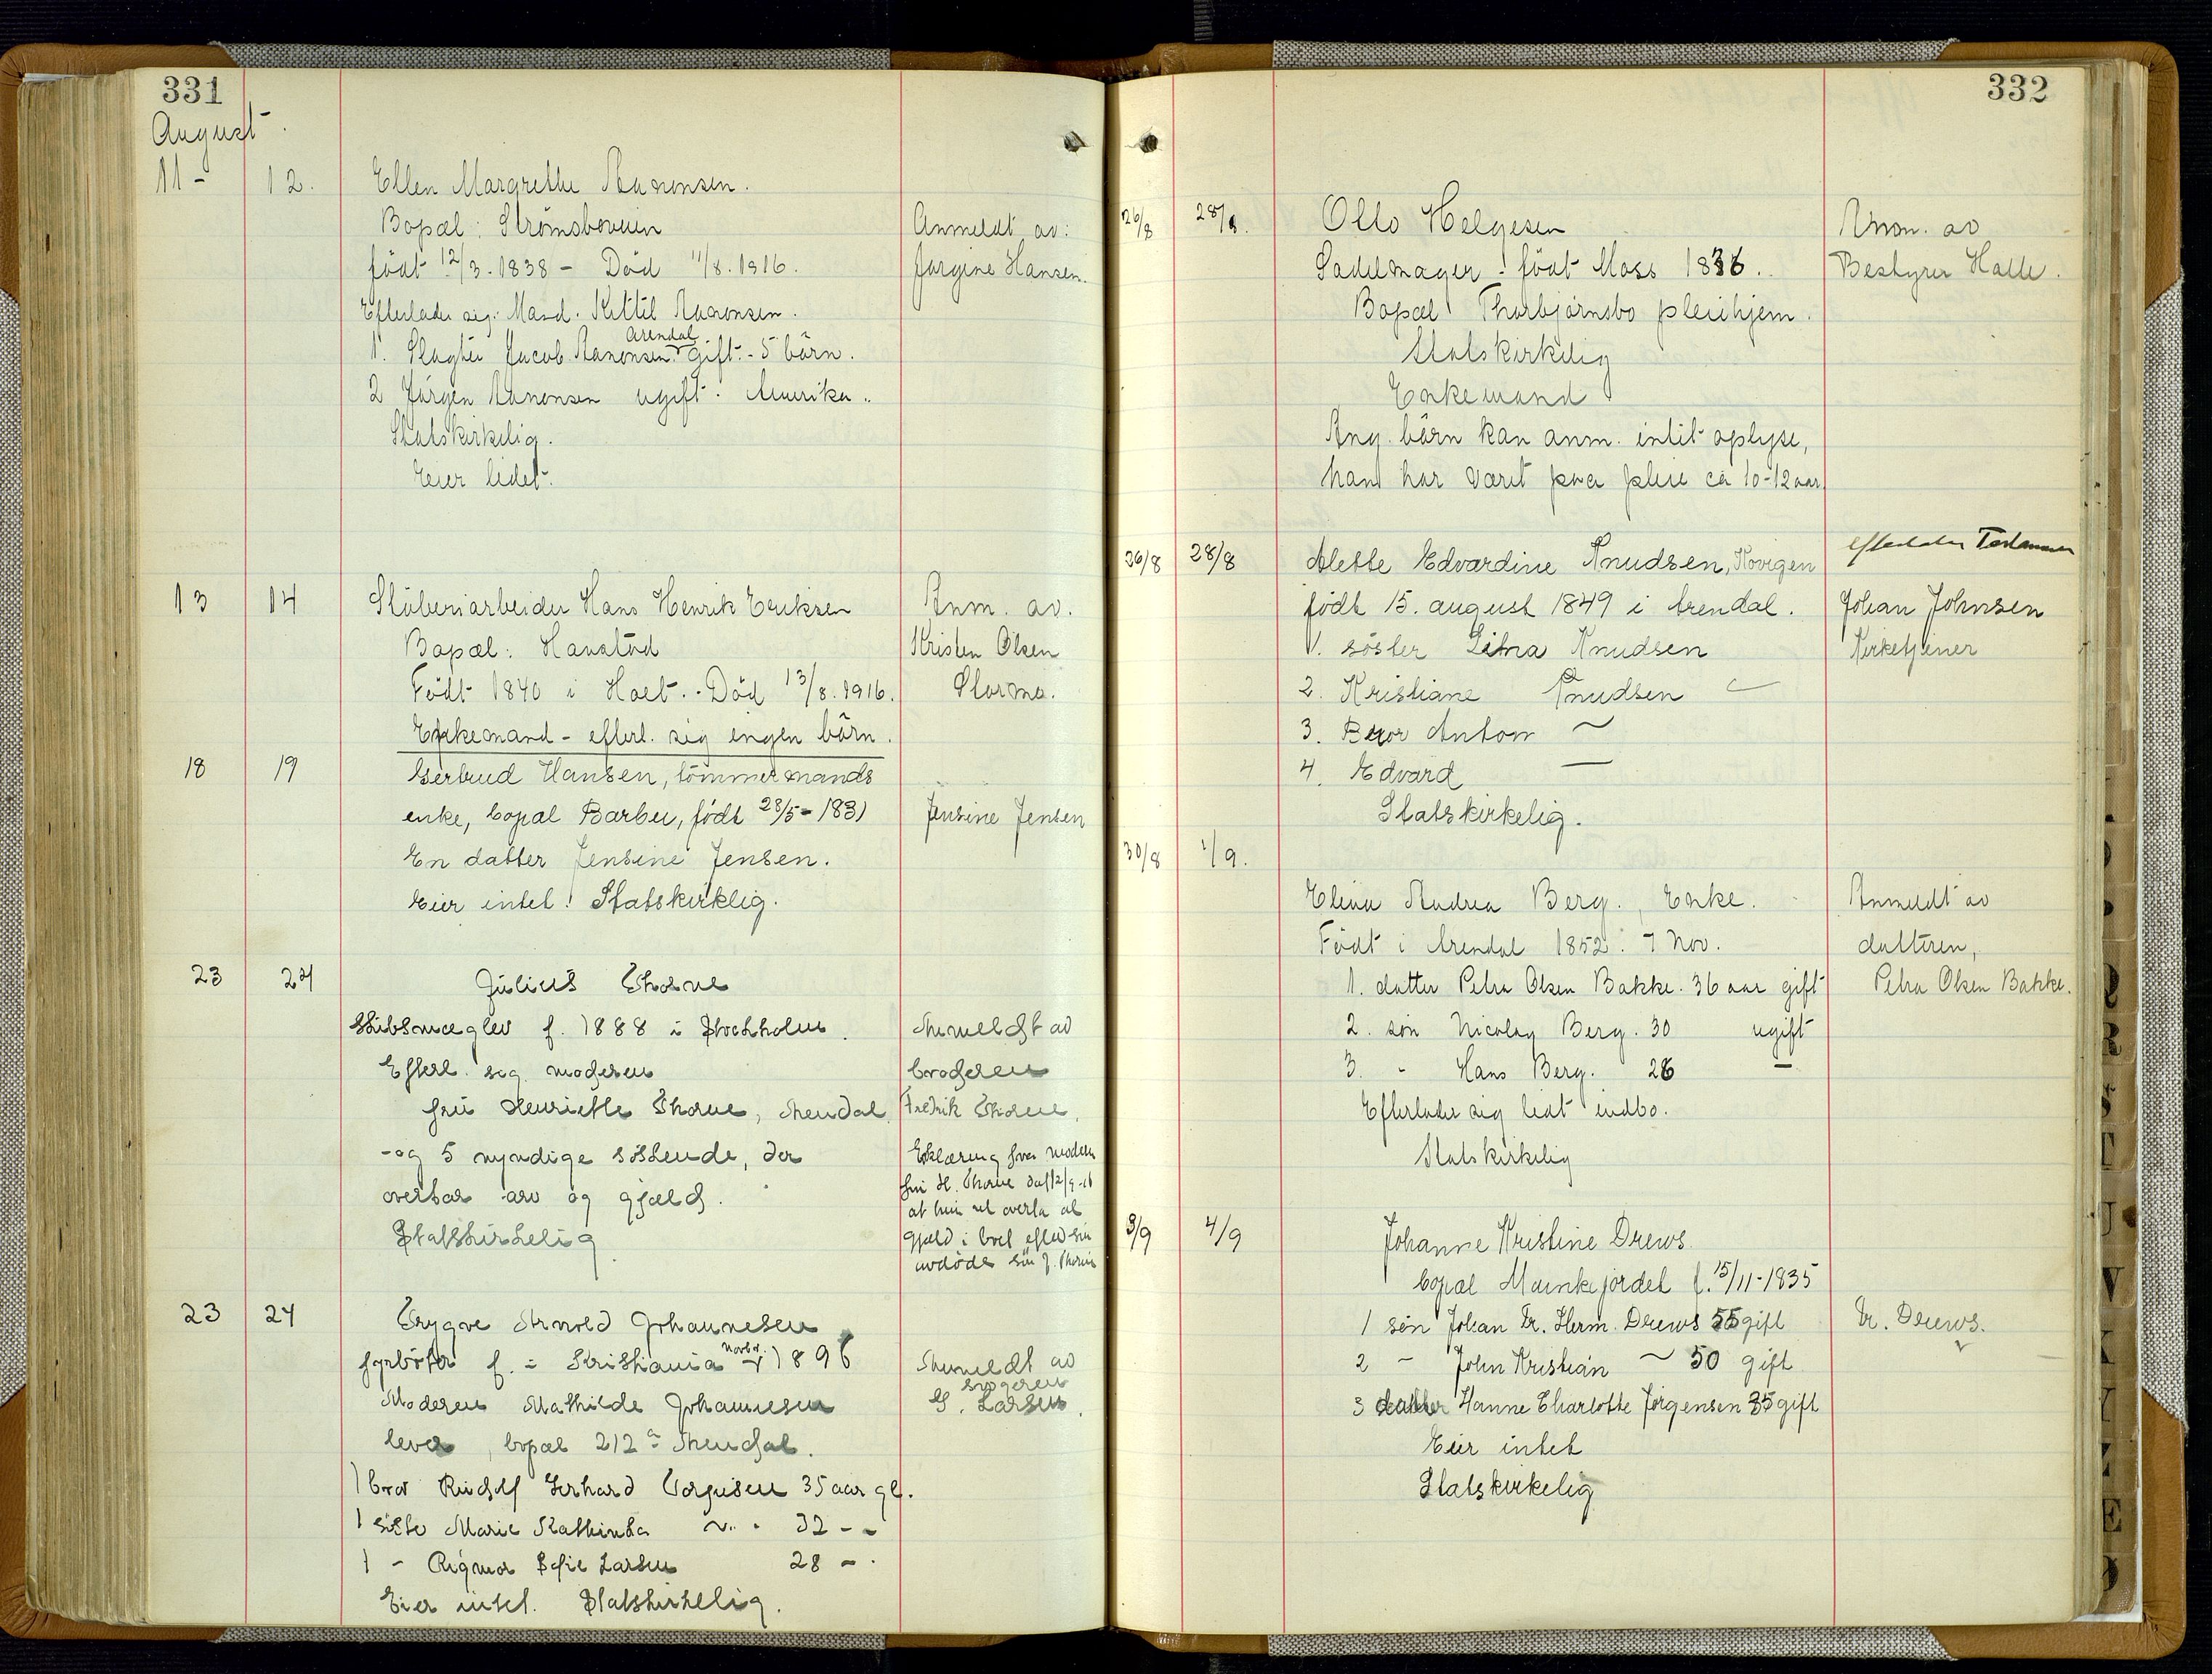 331
August
11 - 12. Ellen Margrethe Aanonsen.
Bopæl: Strömsboveien
født 12/3.1838 - Död 11/8.1916.
Anmeldt av:
Jørgine Hansen.
Efterlader sig: Mand. Kittil Aanonsen.
1. Slagter Jacob Aanonsen Arendal gift - 5 børn.
2 Jørgen Aanonsen ugift. Amerika.
Statskirkelig.
Eier lidet.
13 14 Støberiarbeider Hans Henrik Eriksen
Bopæl: Havstad
Født 1840 i Holt. - Død 13/8.1916.
Enkemand - efterl. sig ingen børn.
Anm. av.
Kristen Olsen
18 19 Gertrud Hansen, tømmermands
enke, bopæl Barbu, født 28/5-1831
En datter Jensine Jensen.
Eier intet. Statskirklig.
Jensine Jensen
23 24 Julius Thorne
skibsmægler f. 1888 i Stockholm.
Efterl. sig moderen
fru Henriette Thorne, Arendal
- og 5 myndige søskende, der
overtar arv og gjæld.
Statskirkelig
Anmeldt av
broderen
Fredrik Thorne.
Erklæring fra moderen
fru H. Thorne dat 12/9-16
at hun vil overta al
gjæld i boet efter sin
avdøde søn J. Thorne
23 24 Trygve Arnold Johannesen
fyrbøter f. i Kristiania 1896
Moderen Mathilde Johannesen
lever, bopæl 212a Arendal.
1 bror Rudolf Gerhard Torjusen 35 aar gl.
1 søster Marie Kathinka ~ 32 - -
1 - Rigmor Sofie Larsen 28 - .
Eier intet. Statskirkelig.
Anmeldt av
svogeren
G. Larsen.
332
26/8 28/8. Otto Helgesen
Sadelmager - født Moss 1836.
Bopæl Thorbjørnsbo pleiehjem.
Statskirkelig
Enkemand
Ang. børn kan anm. intet oplyse,
han har været paa pleie ca 10-12 aar
Anm. av
Bestyrer Halle.
26/8 28/8 Alette Edvardine Knudsen, Kovigen
født 15. august 1849 i Arendal.
1. søster Lina Knudsen
2. Kristiane Knudsen
3. Bror Anton ~
4. Edvard —
Statskirkelig.
Johan Johnsen
Kirketjener
30/8 1/9.
Elina Andrea Berg., Enke.
Født i Arendal 1852. 7 Nov.
1. datter Petra Olsen Bakke. 36 aar gift
2. søn Nicolay Berg. 30 ugift
3. - Hans Berg. 26 —
Efterlader sig lidt indbo.
Statskirkelig
Anmeldt av
datteren,
Petra Olsen Bakke.
3/9 4/9 Johanne Kristine Drews.
bopæl Munkejordet f. 15/11-1835
1 søn Johan Fr. Herm. Drews 55 gift
2 - John Kristian ~ 50 gift
3 datter Hanne Charlotte Jørgensen 35 gift
Eier intet
Statskirkelig
Fr. Drews.